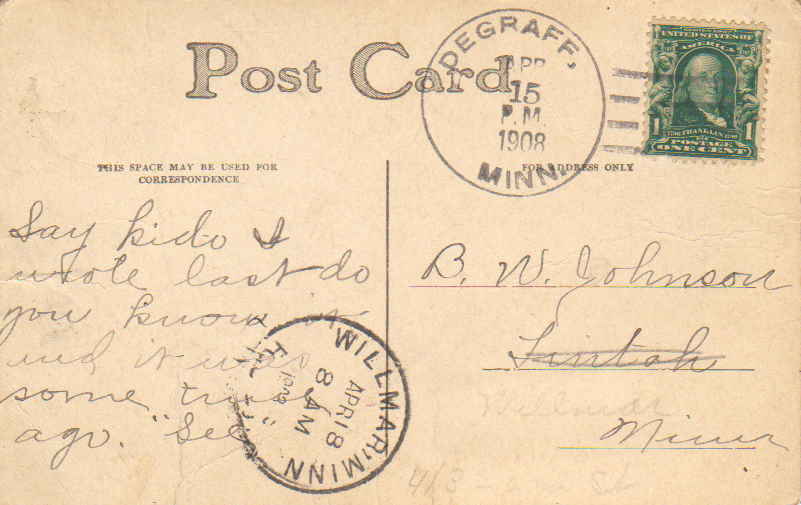 Post Card
DEGRAFF,
APR
15
P.M.
1908
MINN.
UNITED STATES OF
AMERICA
1 FRANKLIN 1
POSTAGE
ONE CENT
THIS SPACE MAY BE USED FOR
CORRESPONDENCE
FOR ADDRESS ONLY
Say kido I
wrote last do
you know it
and it was
some time
ago. "See"
WILLMAR, MINN
APR 18
8 AM
1908
B. W. Johnson
Tintah
Willmar
Minn
413 - St